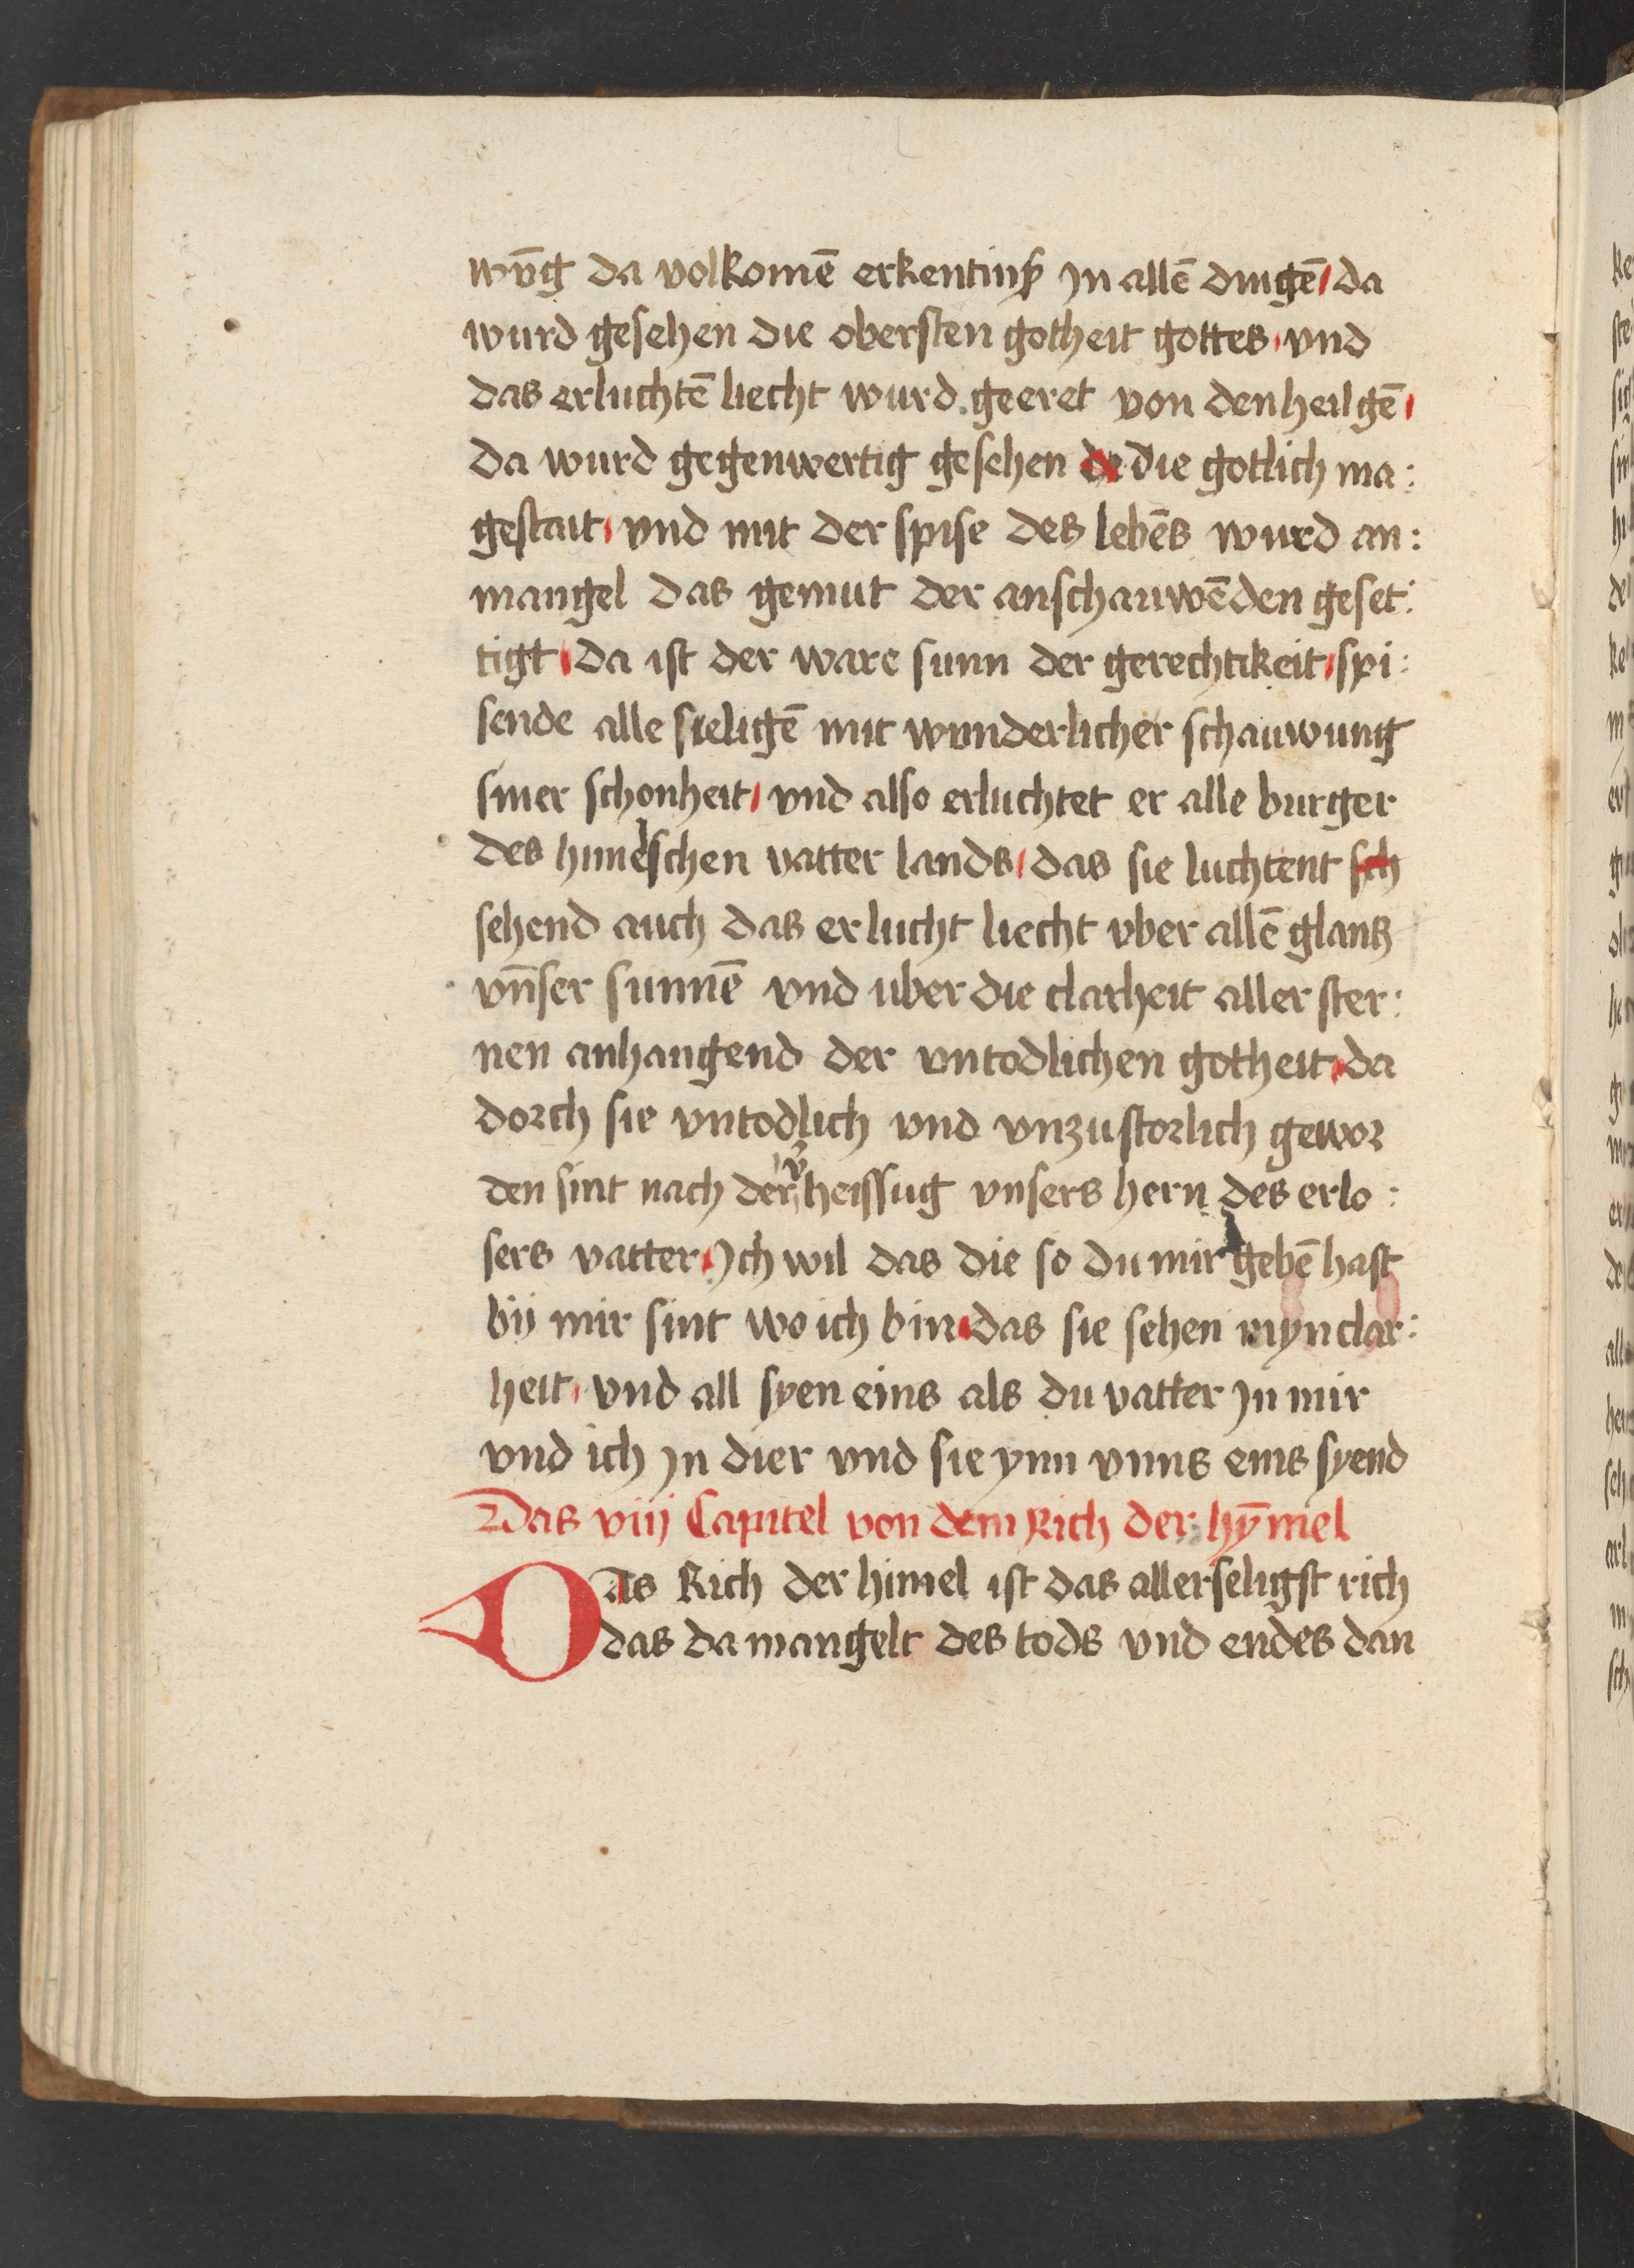 wūg da volkomē erkentinß jn allē dingē da
wurd gesehen die obersten gotheit gottes vnd
das erluchtē liecht wurd geeret von den heilgē
da wurd gegenwertig gesehen de die gotlich ma:
gestait vnd mit der spise des lebēs wurd an:
mangel das gemut der anschauwēden geset:
tigt da ist der ware sunn der gerechtikeit spi:
sende alle sieligē mit wunderlicher schauwung
siner schonheit vnd also erluchtet er alle burger
des himelschen vatter lands das sie luchtent sch
sehend auch das erlucht liecht vber allē glantz
vn̄ser sunnē vnd uber die clarheit aller ster:
nen anhangend der vntodlichen gotheit da
dorch sie vntodlich vnd vnzustorlich gewor
den sint nach der vͦheissug vnsers hern des erlo:
sers vatter Ich wil das die so du mir gebē hast
bij mir sint wo ich bin das sie sehen myn clar:
heit vnd all syen eins als du vatter jn mir
vnd ich jn dier vnd sie ynn vnns eins syend
Das viij Capitel von dem Rich der hȳmel
Das Rich der himel ist das allerseligst rich
das da mangelt des tods vnd endes dan